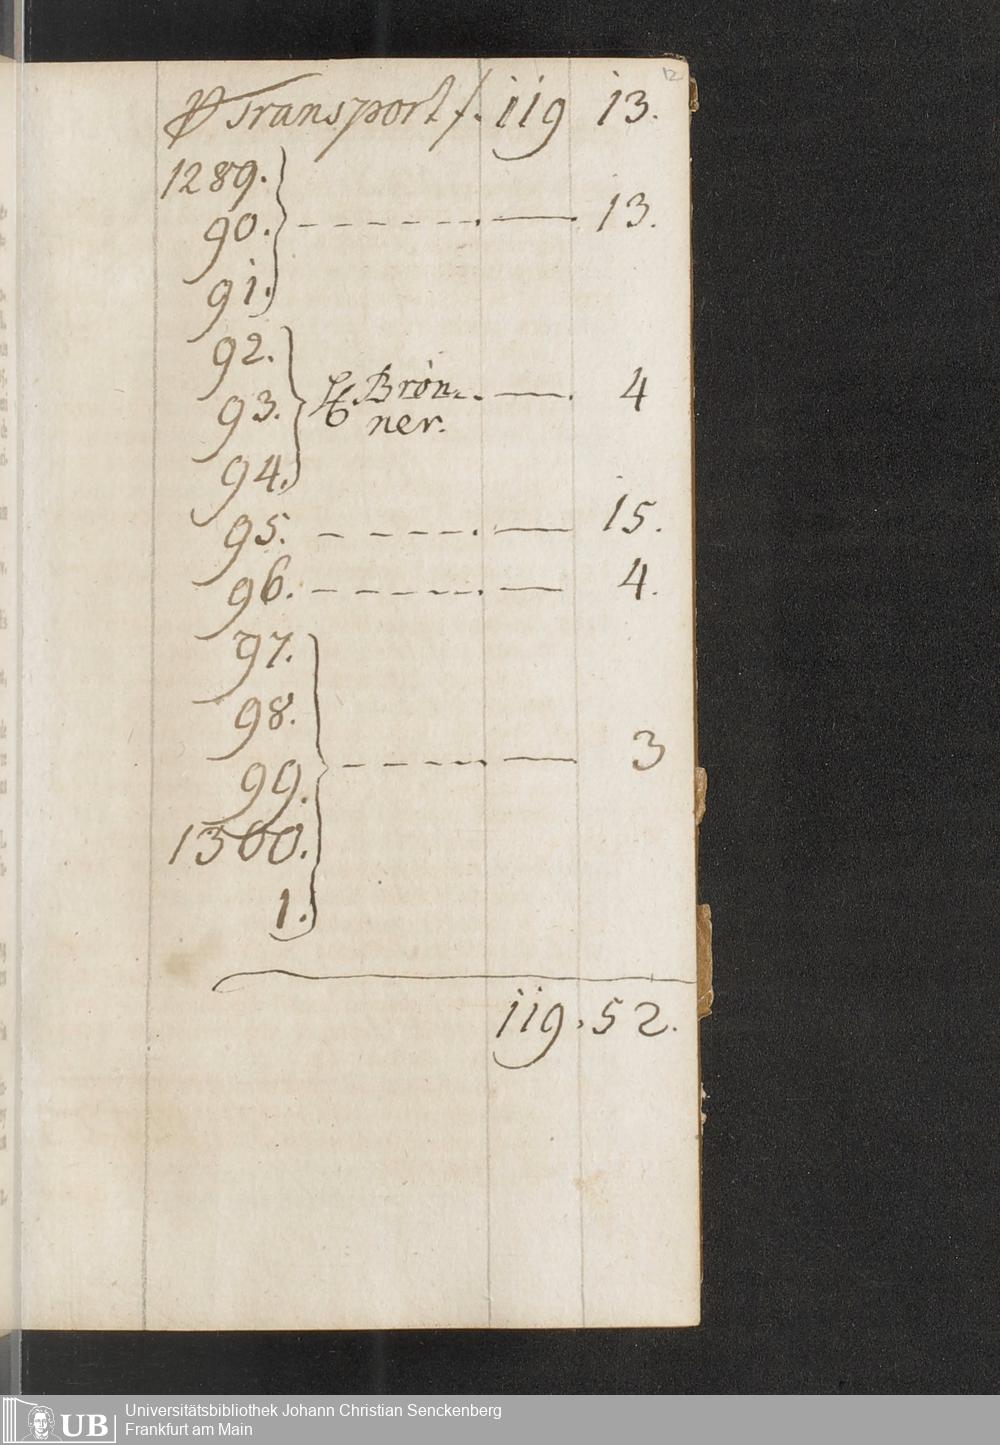 12
Transport f. 119 13.
1289.
90. 13.
91.
92.
93. H Brön= 4
ner.
94.
95. 15.
96. 4.
97.
98.
99. 3
1300.
1.
119. 52.
UB Universitätsbibliothek Johann Christian Senckenberg
Frankfurt am Main